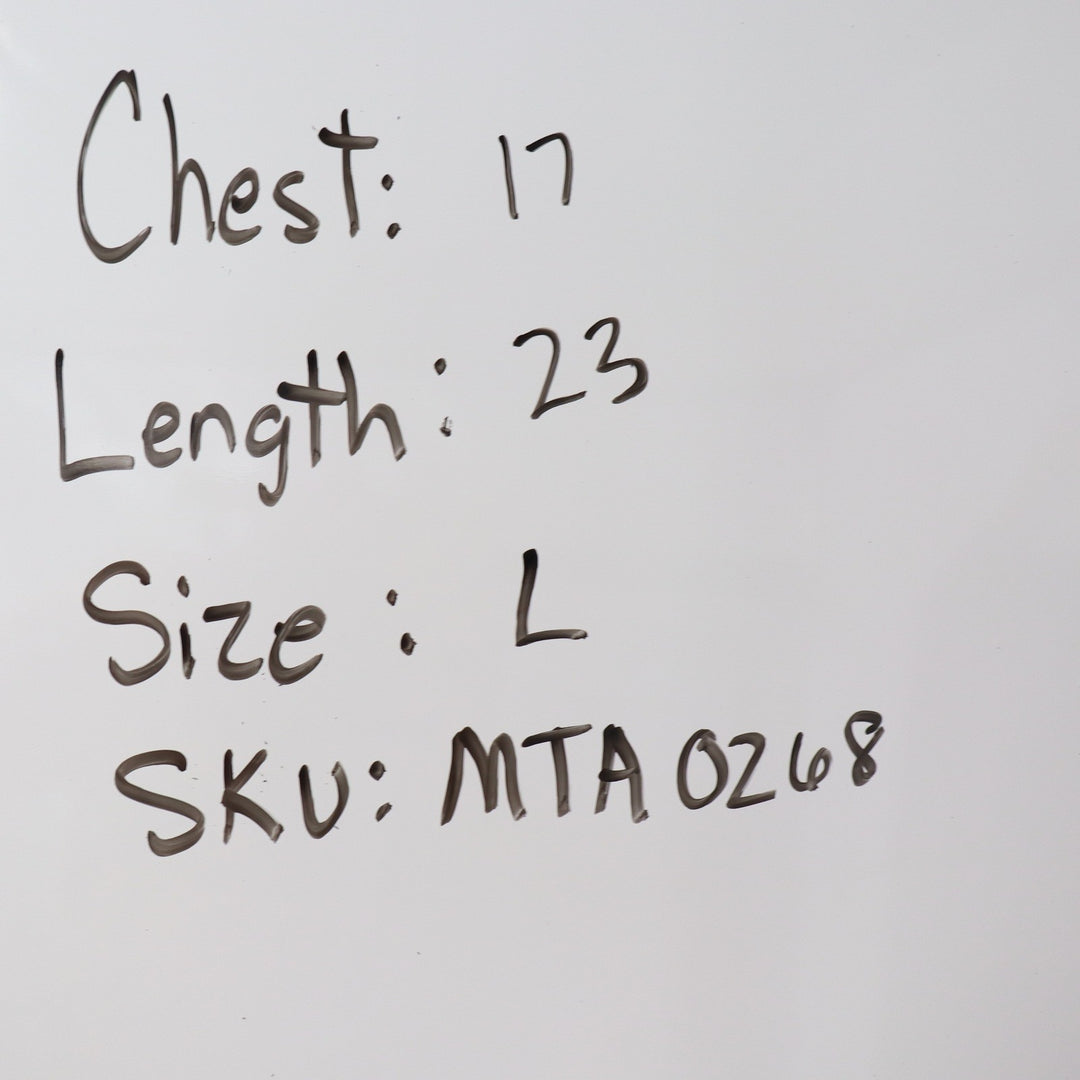 Chest: 17
Length: 23
Size: L
SKU: MTA0268